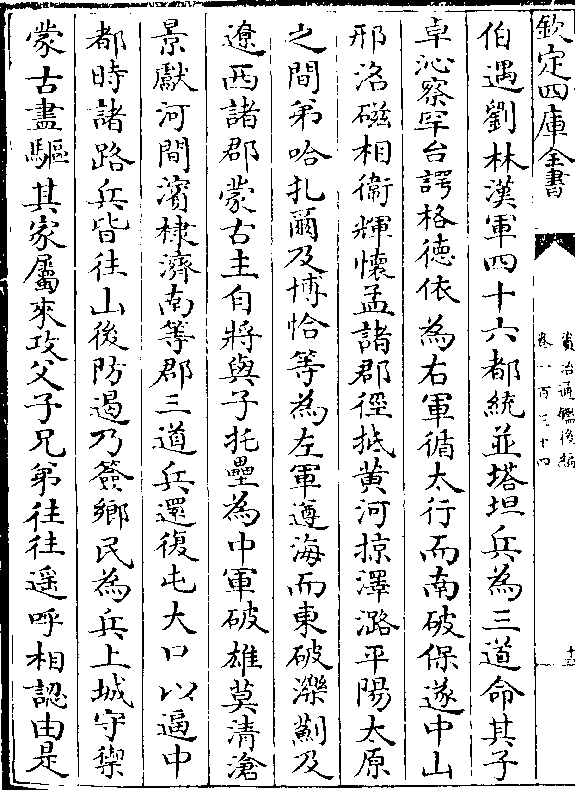 欽定四庫全書
資治通鑑後編
卷一百三十四
十五
伯遇劉林漢軍四十六都統並塔坦兵為三道命其子
卓沁察罕台諤格德依為右軍循太行而南破保遂中山
邢洺磁相衞輝懷孟諸郡徑抵黄河掠澤潞平陽太原
之間弟哈扎爾及博恰等為左軍遵海而東破灤薊及
遼西諸郡蒙古主自將與子托壘為中軍破雄莫清滄
景獻河間濱棣濟南等郡三道兵還復屯大口以逼中
都時諸路兵皆往山後防遏乃簽鄉民為兵上城守禦
蒙古盡驅其家屬來攻父子兄弟往往遥呼相認由是